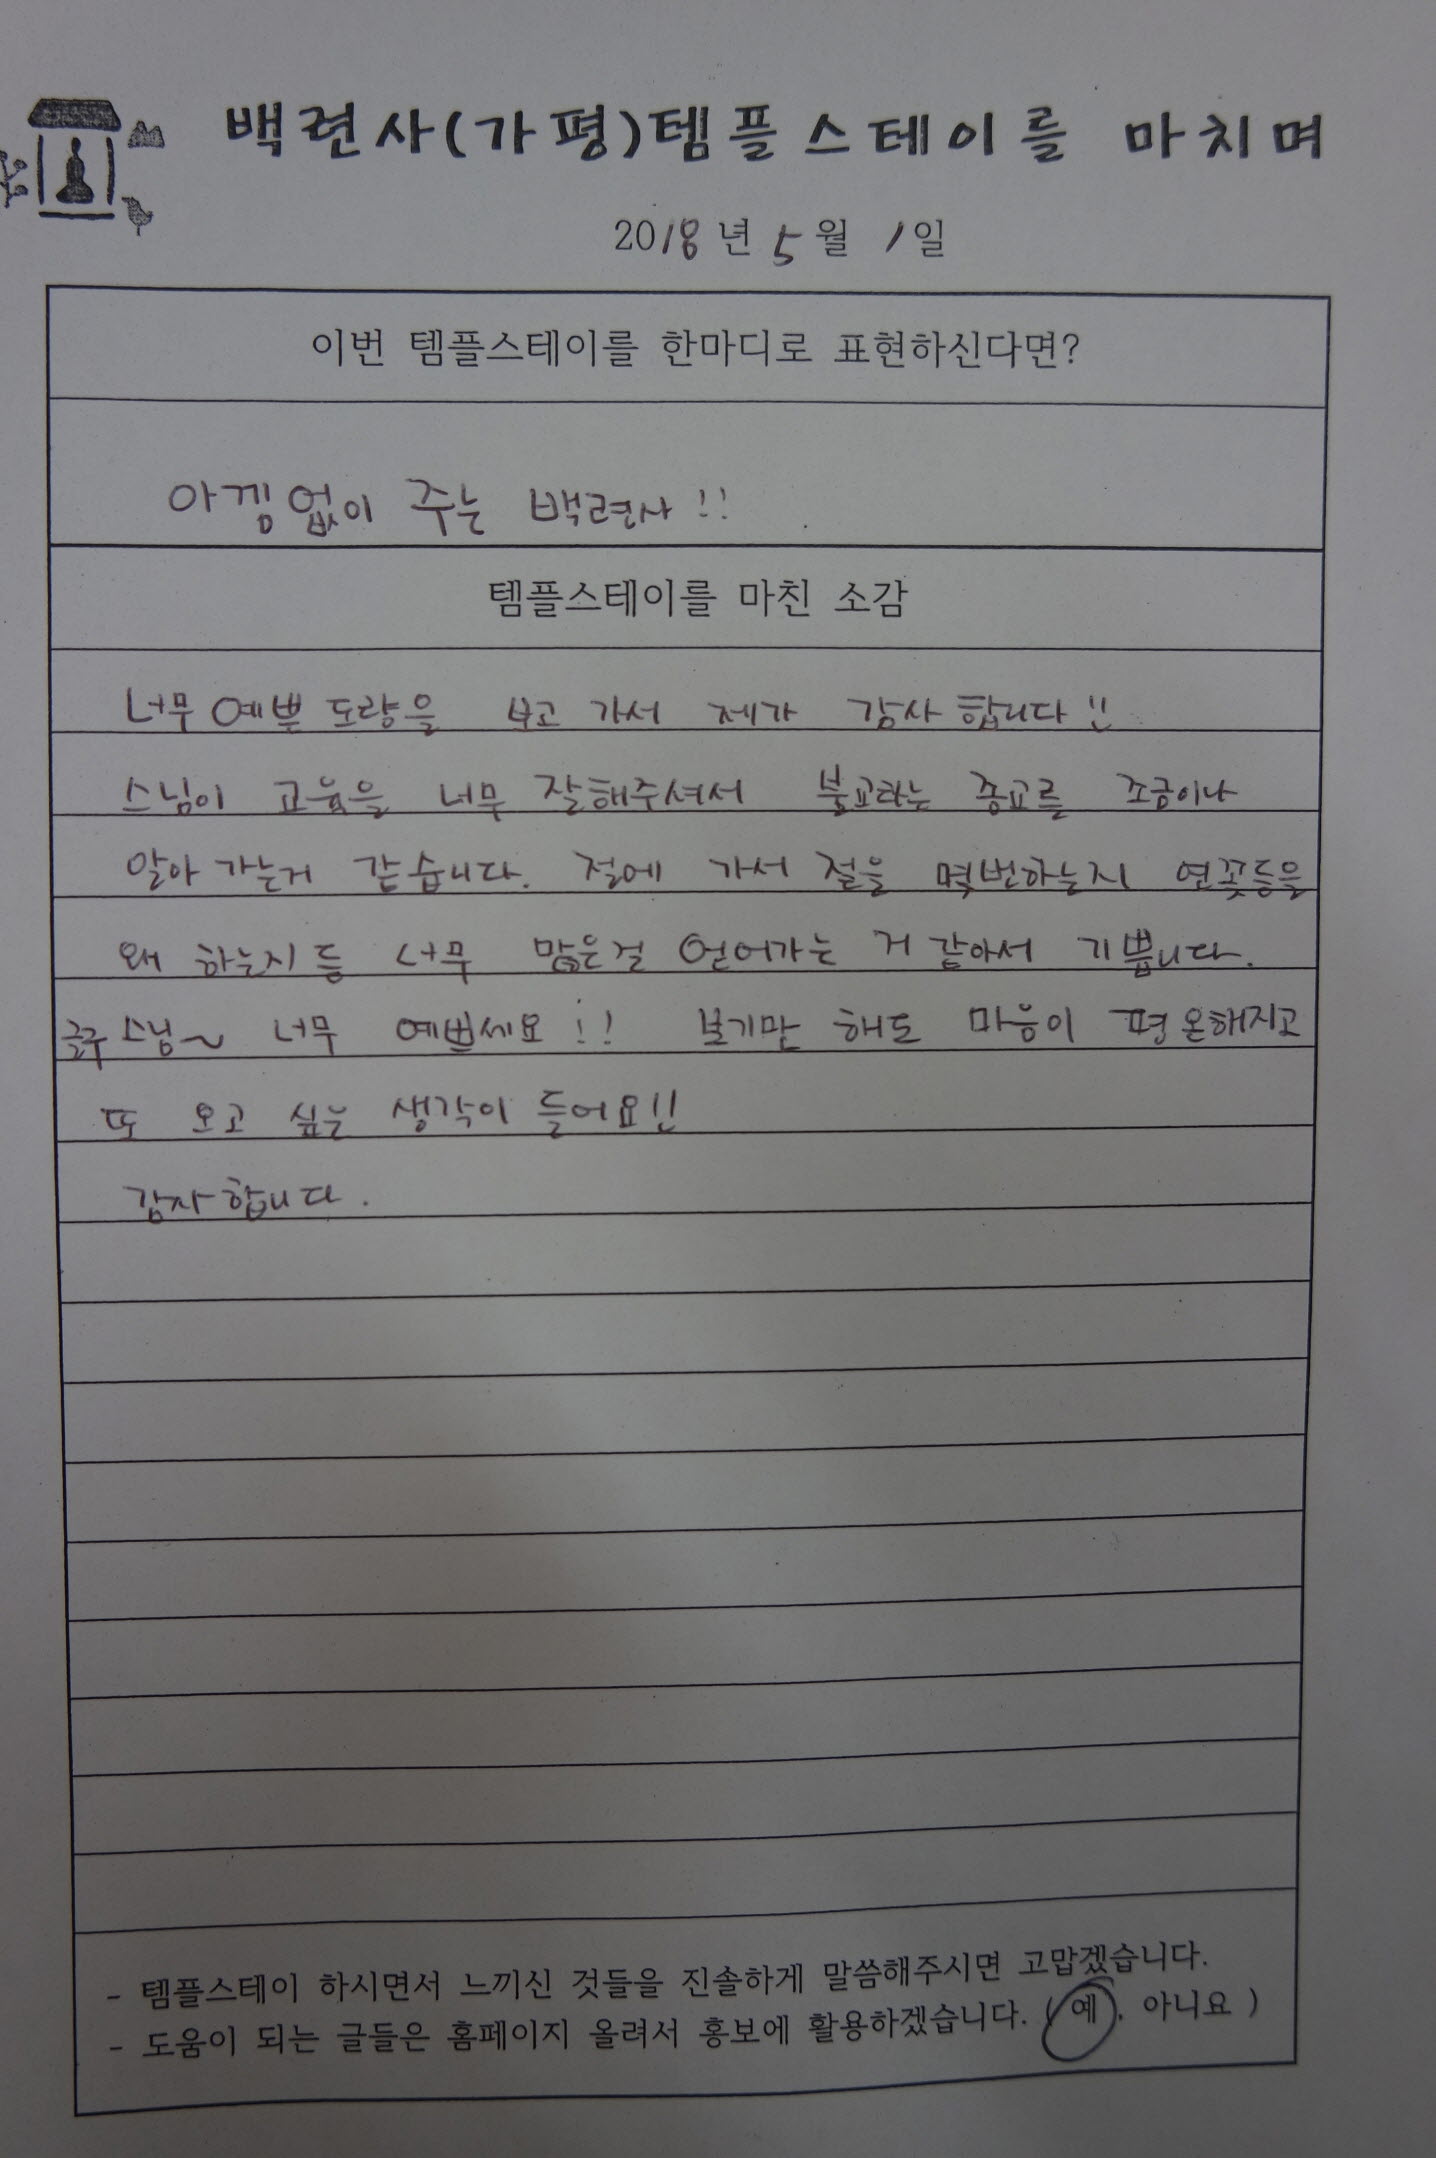 백련사(가평)템플스테이를 마치며
2018년 5월 1일
이번 템플스테이를 한마디로 표현하신다면?
아낌없이 주는 백련사!!
템플스테이를 마친 소감
너무 예쁜 도량을 보고 가서 제가 감사합니다!!
스님이 교육을 너무 잘해주셔서 불교라는 종교를 조금이나
알아 가는거 같습니다. 절에 가서 절을 몇번하는지 연꽃등을
왜 하는지 등 너무 많은걸 얻어가는 거 같아서 기쁩니다.
스님~ 너무 예쁘세요!! 보기만 해도 마음이 평온해지고
또 오고 싶은 생각이 들어요!!
감사합니다.
- 템플스테이 하시면서 느끼신 것들을 진솔하게 말씀해주시면 고맙겠습니다.
- 도움이 되는 글들은 홈페이지 올려서 홍보에 활용하겠습니다. ( 예 , 아니요 )